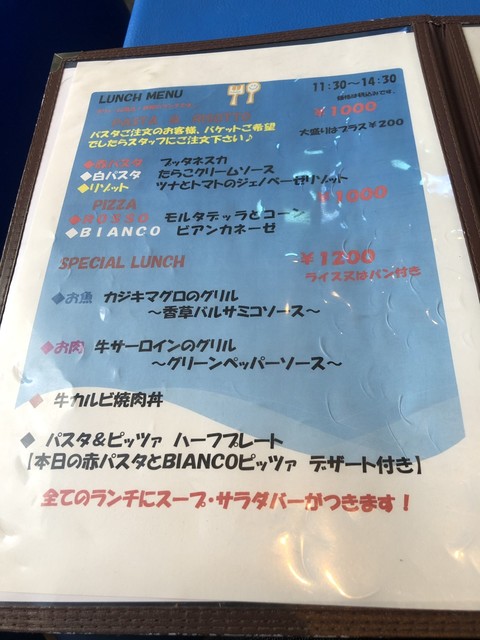 LUNCH MENU 11:30～14:30
価格は税込みです。
PASTA & RISOTTO ￥1000
パスタご注文のお客様、バケットご希望
でしたらスタッフにご注文下さい♪
大盛りはプラス￥200
◆赤パスタ プッタネスカ
◆白パスタ たらこクリームソース
◆リゾット ツナとトマトのジェノベーゼリゾット
PIZZA ￥1000
◆ROSSO モルタデッラとコーン
◆BIANCO ビアンカネーゼ
SPECIAL LUNCH ￥1200
ライス又はパン付き
◆お魚 カジキマグロのグリル
～香草バルサミコソース～
◆お肉 牛サーロインのグリル
～グリーンペッパーソース～
◆ 牛カルビ焼肉丼
◆ パスタ＆ピッツァ ハーフプレート
【本日の赤パスタとBIANCOピッツァ デザート付き】
全てのランチにスープ・サラダバーがつきます！